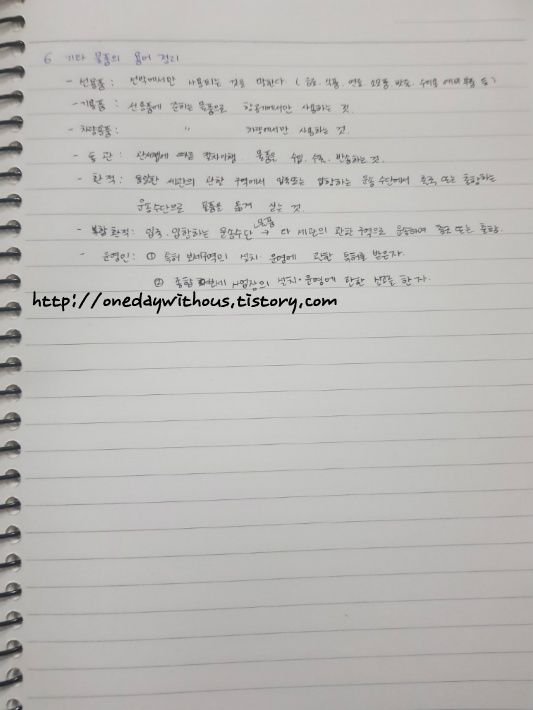 6 기타 물품의 용어 정리
- 선용품 : 선박에서만 사용되는 것을 말한다 ( 음료, 식품, 연료, 소모품, 밧줄, 수리용 예비 부품 등 )
- 기용품 : 선용품에 준하는 물품으로 항공기에서만 사용하는 것.
- 차량용품 : " 차량에서만 사용하는 것.
- 통 관 : 관세법에 따른 절차이행. 물품을 수입, 수출, 반송하는 것.
- 환 적 : 동일한 세관의 관할 구역에서 입국 또는 입항하는 운송 수단에서 출국 또는 출항하는
운송수단으로 물품을 옮겨 싣는 것.
- 복합 환적 : 입국, 입항하는 운송수단 물품 → 다 세관의 관할 구역으로 운송하여 출국 또는 출항.
- 운영인 : ① 특허 보세구역의 설치·운영에 관한 특허를 받은자.
② 종합 보세 사업장의 설치·운영에 관한 신고를 한 자.
http://onedaywithous.tistory.com